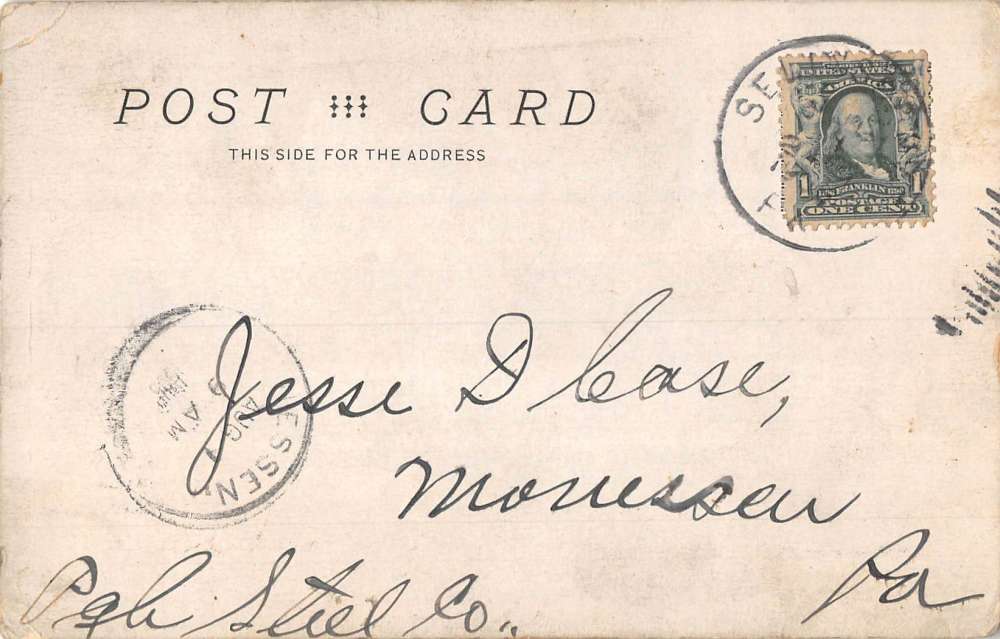 POST CARD
THIS SIDE FOR THE ADDRESS
UNITED STATES OF
AMERICA
1706 FRANKLIN 1790
1 POSTAGE 1
ONE CENT
Jesse D Case,
Monessen
Pa
Pgh Steel Co.,
ESSEN,
AUG 1
AM